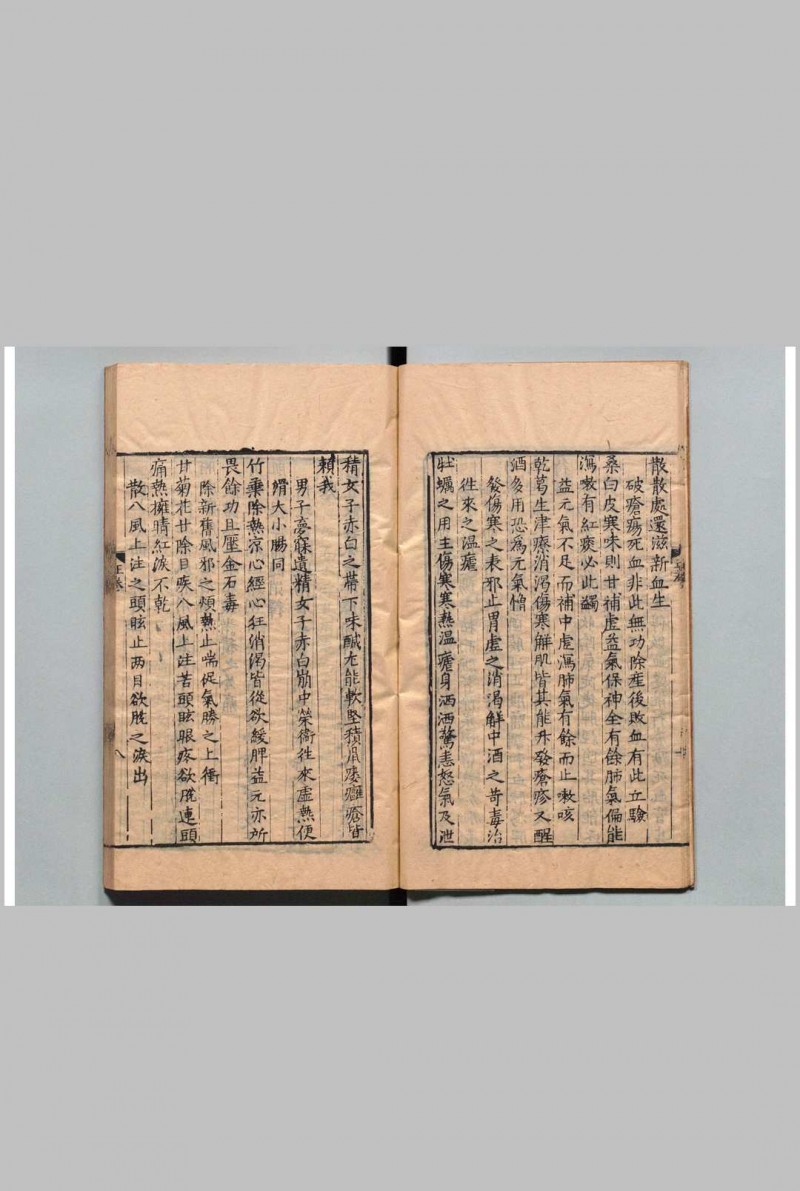 散散處還滋新血生
破瘡瘍死血非此無功除産後敗血有此立驗
桑白皮寒味則甘補虚益氣保神全有餘肺氣偏能
瀉嗽有紅痰必此蠲
益元氣不足而補中虚瀉肺氣有餘而止嗽咳
乾葛生津療消渴傷寒解肌皆其能升發瘡疹又醒
酒多用恐爲元氣憎
發傷寒之表邪止胃虚之消渴解中酒之苛毒治
徃來之温瘧
牡蠣之用主傷寒寒熱温瘧身洒洒驚恚怒氣及泄
精女子赤白之帶下味醎尤能軟堅積鼠瘻癰瘡皆
賴我
男子夢寐遺精女子赤白崩中榮衛徃來虚熱便
滑大小腸同
竹葉除熱凉心經心狂消渴皆從欲緩脾益元亦所
畏餘功且壓金石毒
除新舊風邪之煩熱止喘促氣勝之上衝
甘菊花甘除目疾八風上注苦頭眩眼疼欲脱連頭
痛熱擁睛紅淚不乾
散八風上注之頭眩止两目欲脱之淚出
八